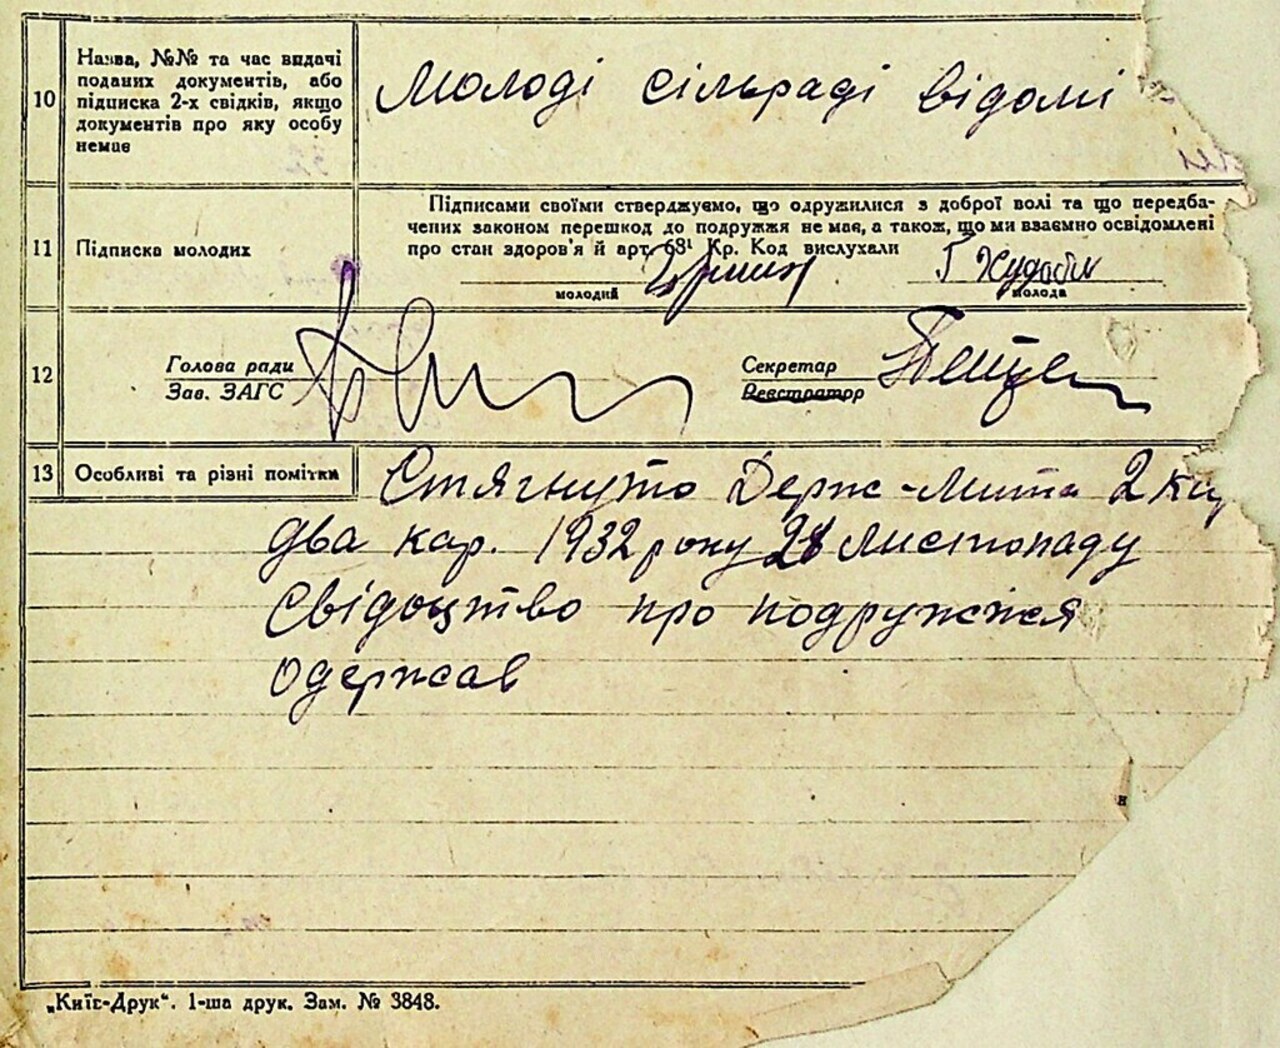 10
Назва, №№ та час видачі
поданих документів, або
підписка 2-х свідків, якщо
документів про яку особу
немає
Молоді сільраді відомі
11
Підписка молодих
Підписами своїми стверджуємо, що одружилися з доброї волі та що передба-
чених законом перешкод до подружжя не має, а також, що ми взаємно освідомлені
про стан здоров'я й арт. 68¹ Кр. Код вислухали
Г Худоби
молодий
молода
12
Голова ради
Зав. ЗАГС
Секретар
Реєстратор
13
Особливі та різні помітки
Стягнуто Держ-мита 2
два кар. 1932 року 28 листопаду
Свідоцтво про подружжя
одержав
н
„Київ-Друк“. 1-ша друк. Зам. № 3848.